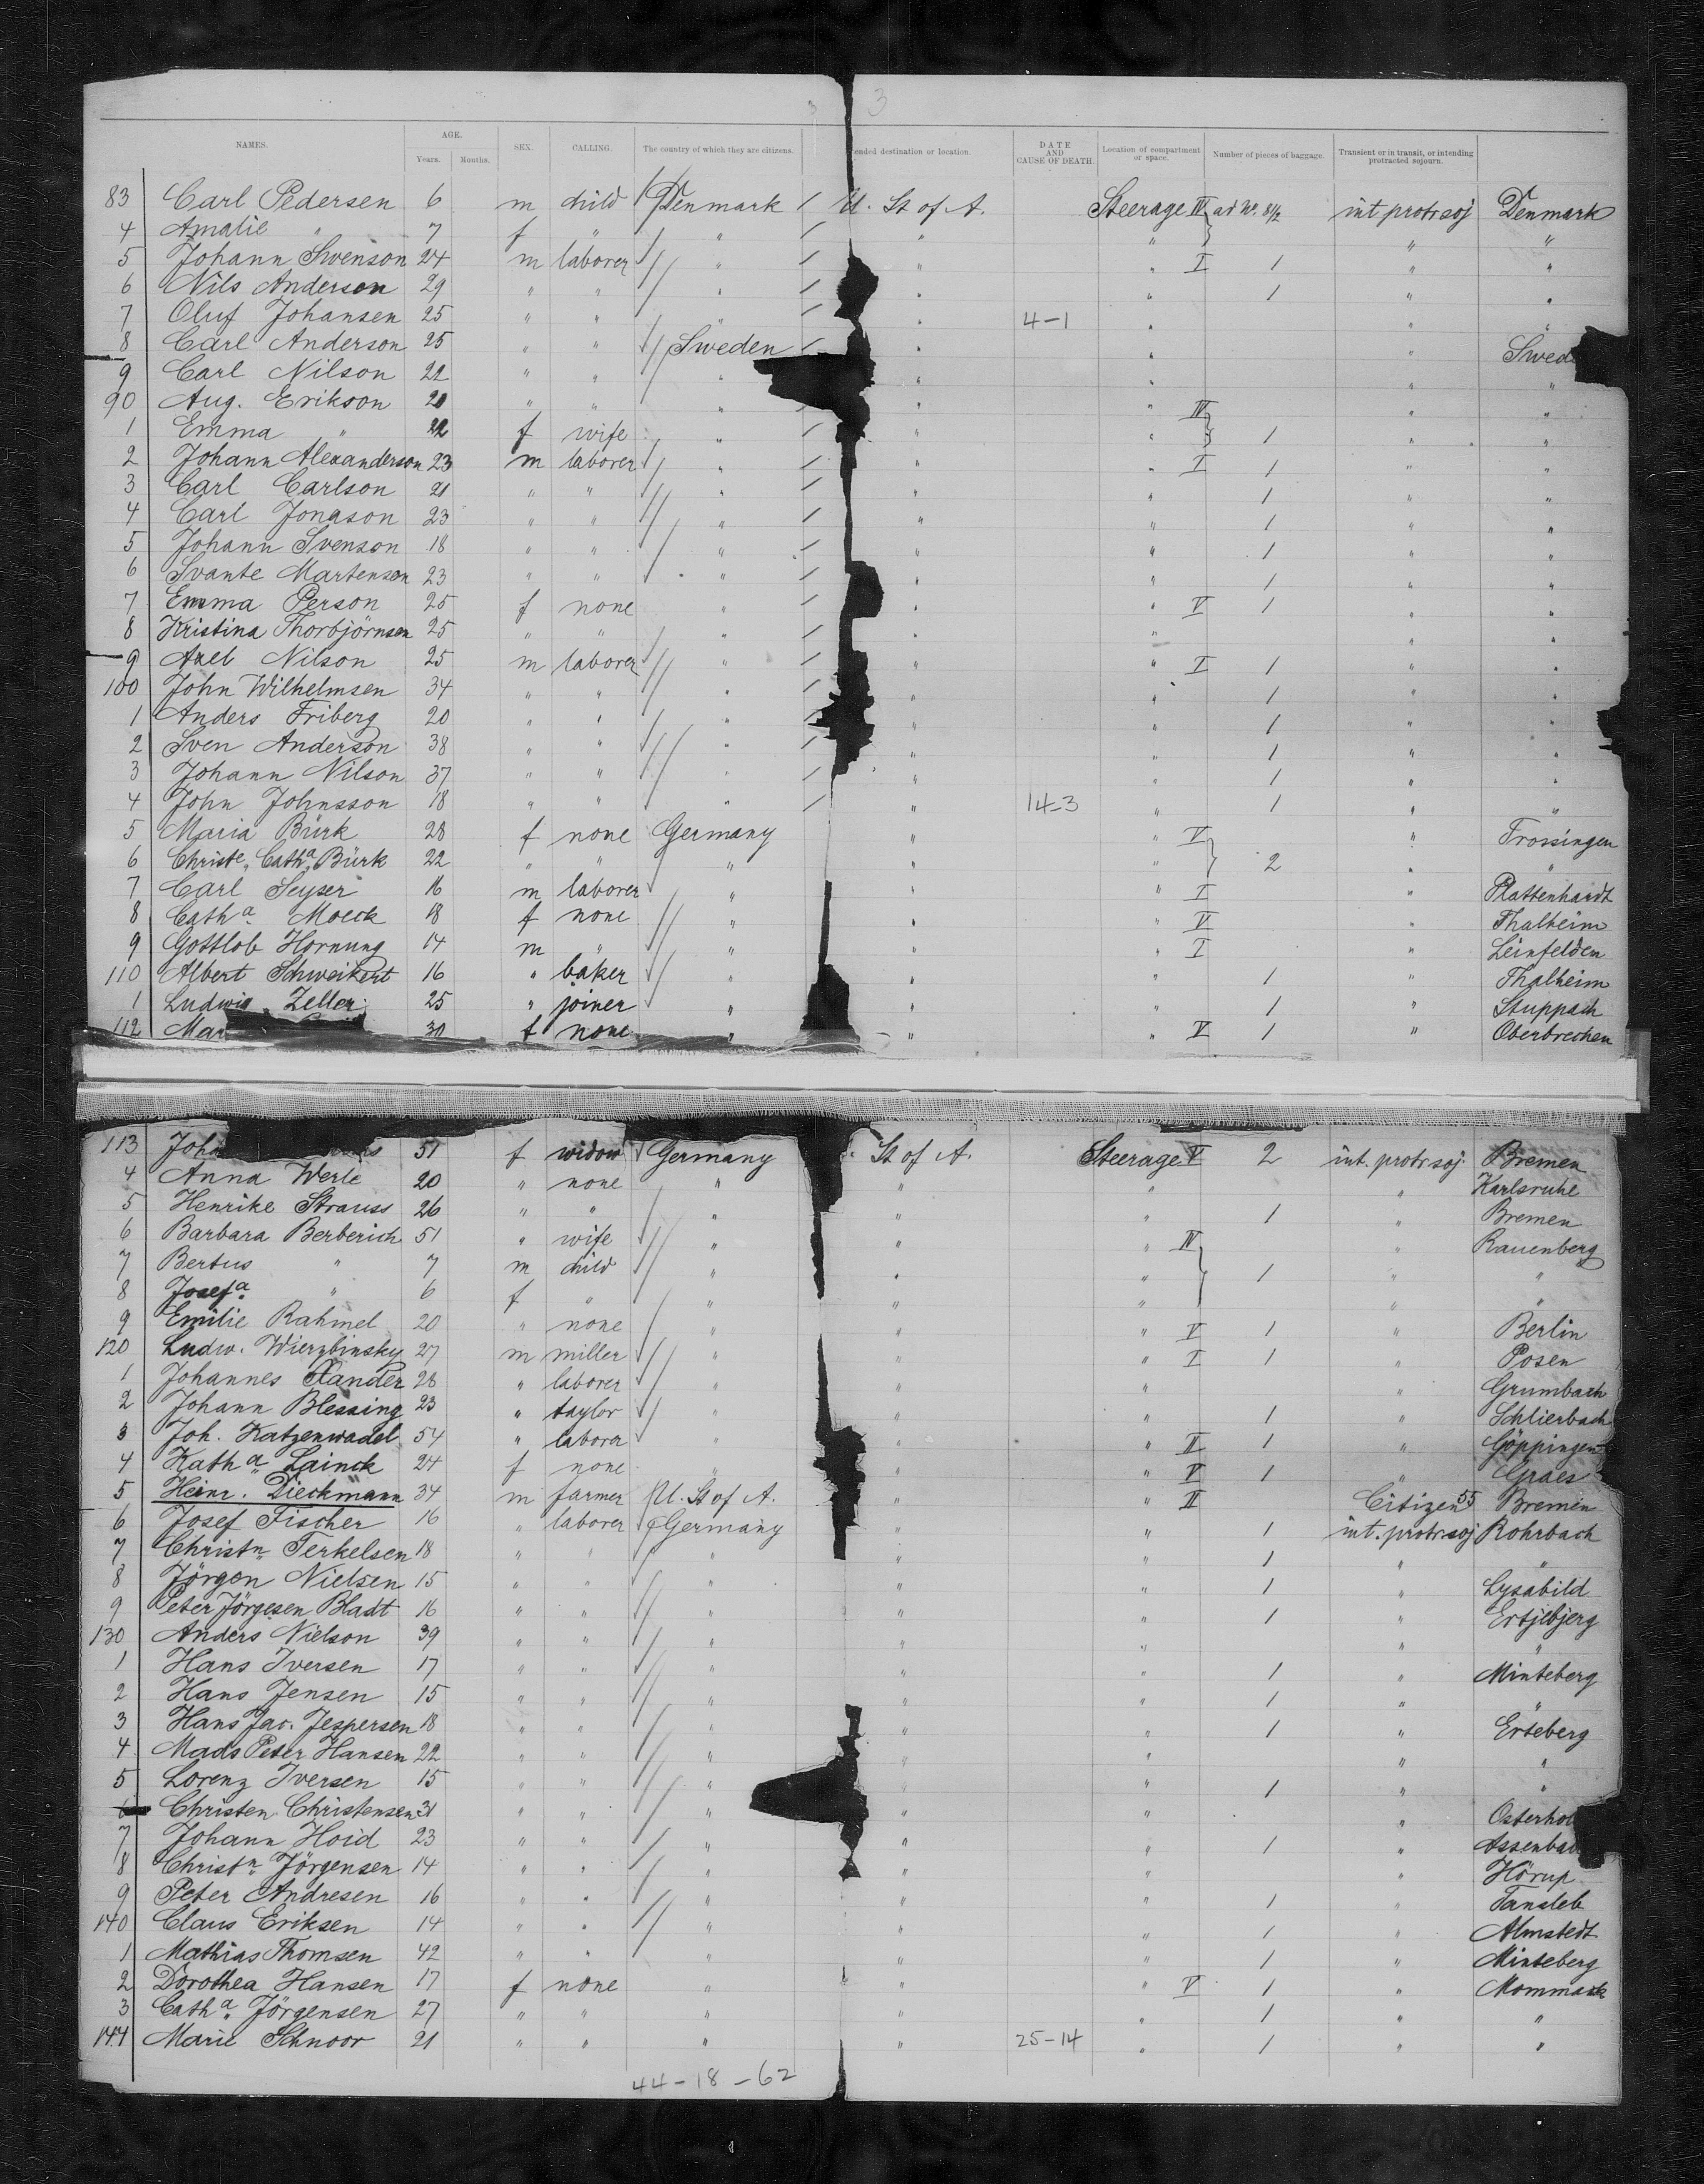 3 3
NAMES. AGE. Years. Months. SEX. CALLING. The country of which they are citizens. ended destination or location. DATE AND CAUSE OF DEATH. Location of compartment or space. Number of pieces of baggage. Transient or in transit, or intending protracted sojourn.
83 Carl Pedersen 6 m child Denmark U. St of A. Steerage IV ad No. 81/2 int protr soj Denmark
4 Amalie " 7 f " " " " " "
5 Johann Swenson 24 m laborer " " " I 1 " "
6 Nils Anderson 29 " " " " " 1 " "
7 Oluf Johansen 25 " " " " 4-1 " " "
8 Carl Anderson 25 " " Sweden " " " Swed
9 Carl Nilson 22 " " " " " " "
90 Aug. Erikson 20 " " " " " IV " "
1 Emma " 22 f wife " " " 1 " "
2 Johann Alexanderson 23 m laborer " " " I 1 " "
3 Carl Carlson 21 " " " " " 1 " "
4 Carl Jonason 23 " " " " " 1 " "
5 Johann Svenson 18 " " " " " 1 " "
6 Svante Martenson 23 " " " " " 1 " "
7 Emma Person 25 f none " " " V 1 " "
8 Kristina Thorbjörnsen 25 " " " " " " "
9 Axel Nilson 25 m laborer " " " I 1 " "
100 John Wilhelmsen 34 " " " " " 1 " "
1 Anders Friberg 20 " " " " " 1 " "
2 Sven Anderson 38 " " " " " 1 " "
3 Johann Nilson 37 " " " " " 1 " "
4 John Johnsson 18 " " " " 14-3 " 1 " "
5 Maria Bürk 28 f none Germany " " V " Trossingen
6 Christe. Catha. Bürk 22 " " " " " 2 " "
7 Carl Seyser 16 m laborer " " " I " Plattenhardt
8 Catha. Moeck 18 f none " " " V " Thalheim
9 Gottlob Hornung 14 m " " " " I " Leinfelden
110 Albert Schweikert 16 " baker " " " 1 " Thalheim
1 Ludwig Zeller 25 " joiner " " " 1 " Stuppach
112 Mar 30 f none " " " V 1 " Oberbrechen
113 Joh 51 f widow Germany St of A. Steerage V 2 int. protr soj. Bremen
4 Anna Werle 20 " none " " " " Karlsruhe
5 Henrike Strauss 26 " " " " " 1 " Bremen
6 Barbara Berberich 51 " wife " " " IV " Rauenberg
7 Bertus " 7 m child " " " 1 " "
8 Josefa. " 6 f " " " " " "
9 Emilie Rahmel 20 " none " " " V 1 " Berlin
120 Ludw. Wierzbinsky 27 m miller " " " I 1 " Posen
1 Johannes Xander 28 " laborer " " " " Grumbach
2 Johann Blessing 23 " taylor " " " 1 " Schlierbach
3 Joh. Katzenwadel 54 " laborer " " " II 1 " Göppingen
4 Katha. Lainck 24 f none " " " V 1 " Graes
5 Heinr. Dieckmann 34 m farmer U. St of A. " " II Citizen 55 Bremen
6 Josef Fischer 16 " laborer Germany " " 1 int. protr soj Rohrbach
7 Christn. Terkelsen 18 " " " " " 1 " "
8 Jörgen Nielsen 15 " " " " " 1 " Lysabild
9 Peter Jörgesen Bladt 16 " " " " " 1 " Ertjebjerg
130 Anders Nielson 39 " " " " " " "
1 Hans Iversen 17 " " " " " 1 " Minteberg
2 Hans Jensen 15 " " " " " 1 " "
3 Hans Jac. Jespersen 18 " " " " " 1 " Erteberg
4 Mads Peter Hansen 22 " " " " " " "
5 Lorenz Iversen 15 " " " " " 1 " "
6 Christen Christensen 31 " " " " " " Osterhol
7 Johann Hoid 23 " " " " " 1 " Assenba
8 Christn. Jörgensen 14 " " " " " " Hörup
9 Peter Andresen 16 " " " " " 1 " Tansleb
140 Claus Eriksen 14 " " " " " 1 " Almstedt
1 Mathias Thomsen 42 " " " " " 1 " Minteberg
2 Dorothea Hansen 17 f none " " " V 1 " Mommark
3 Catha. Jörgensen 27 " " " " " 1 " "
144 Marie Schnoor 21 " " " " 25-14 " 1 " "
44-18-62